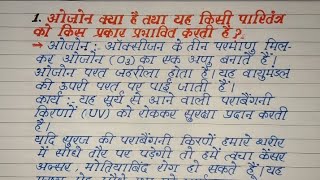 1. ओजोन क्या है तथा यह किसी पारितंत्र
को किस प्रकार प्रभावित करती है ?
→ ओजोन :- ऑक्सीजन के तीन परमाणु मिल-
कर ओजोन (O₃) का एक अणु बनाते हैं।
ओजोन परत जहरीला होता है। यह वायुमंडल
की ऊपरी परत पर पाई जाती हैं।
कार्य :- यह सूर्य से आने वाली पराबैंगनी
किरणों (UV) को रोककर सुरक्षा प्रदान करती
है।
यदि सूरज की पराबैंगनी किरणें हमारे शरीर
में सीधे तौर पर पड़ेगी तो, हमें त्वचा कैंसर
अल्सर, मोतियाबिंद रोग हो सकते हैं। यह